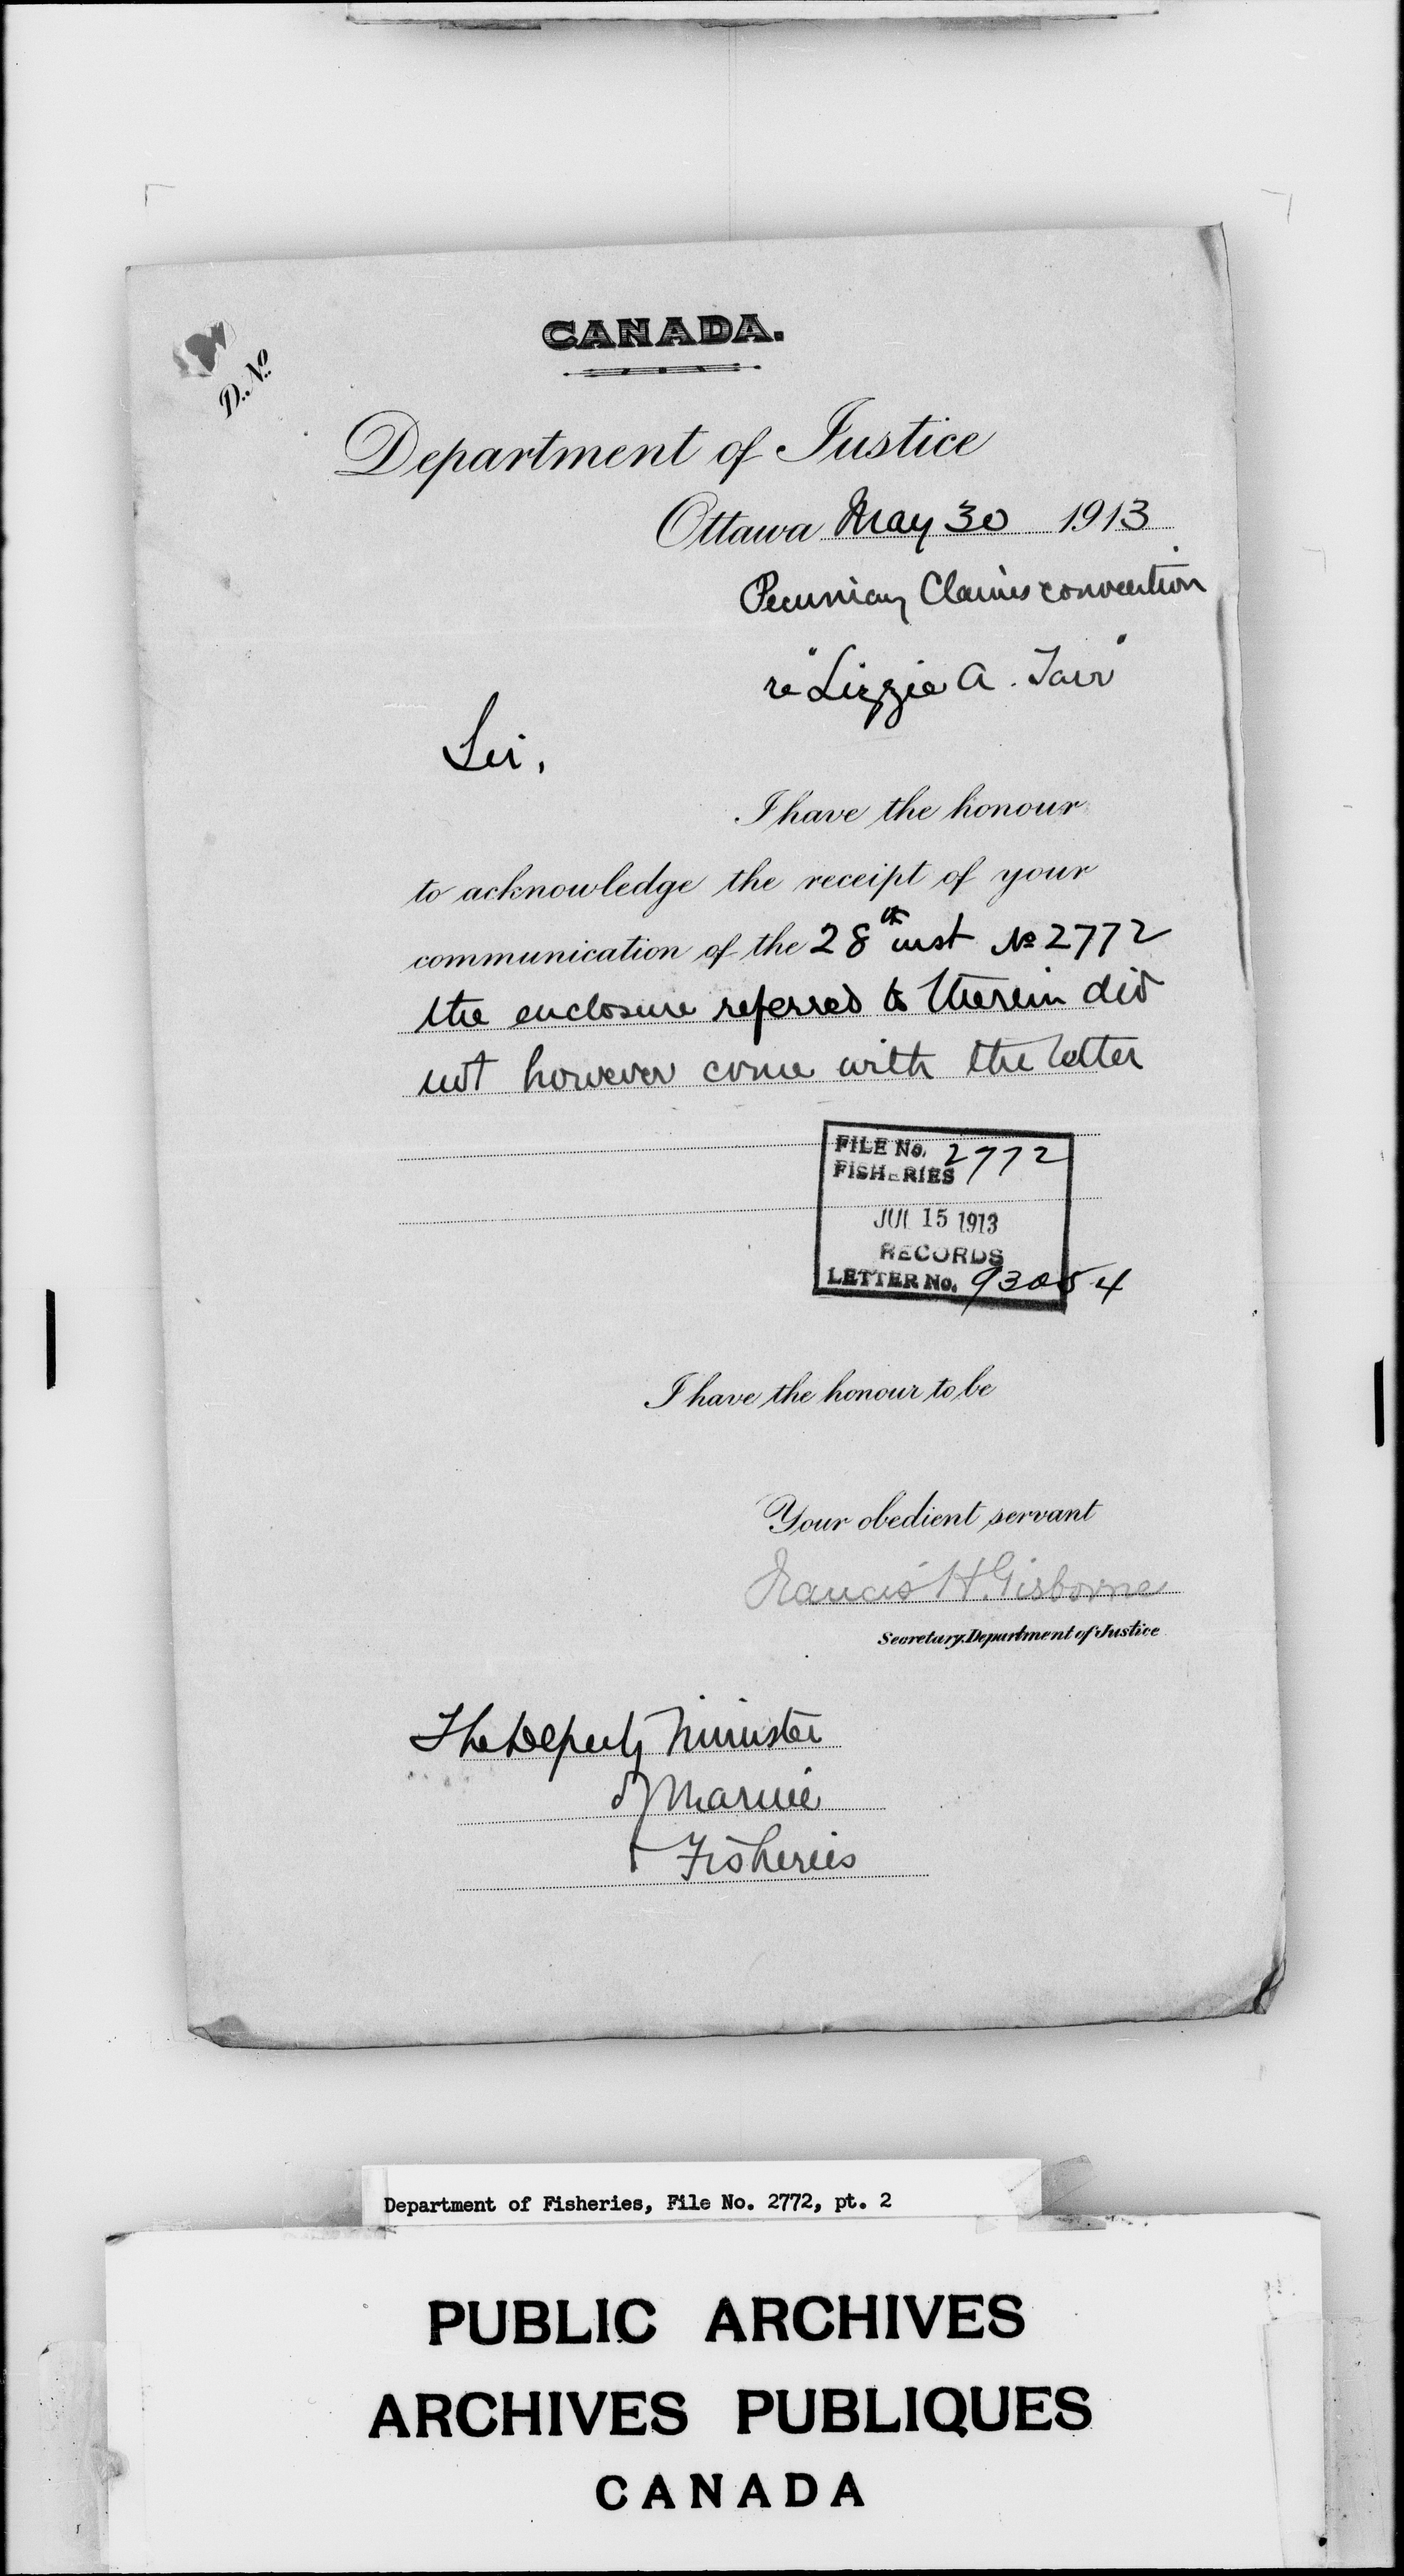 CANADA.
D. No.
Department of Justice
Ottawa May 30 1913
Pecuniary Claims convention
re "Lizzie A. Tarr"
Sir,
I have the honour
to acknowledge the receipt of your
communication of the 28th inst No 2772
the enclosure referred to therein did
not however come with the letter
FILE No. 2772
FISHERIES
JUL 15 1913
RECORDS
LETTER No. 93054
I have the honour to be
Your obedient servant
Francis H. Gisborne
Secretary, Department of Justice
The Deputy Minister
of Marine
& Fisheries
Department of Fisheries, File No. 2772, pt. 2
PUBLIC ARCHIVES
ARCHIVES PUBLIQUES
CANADA